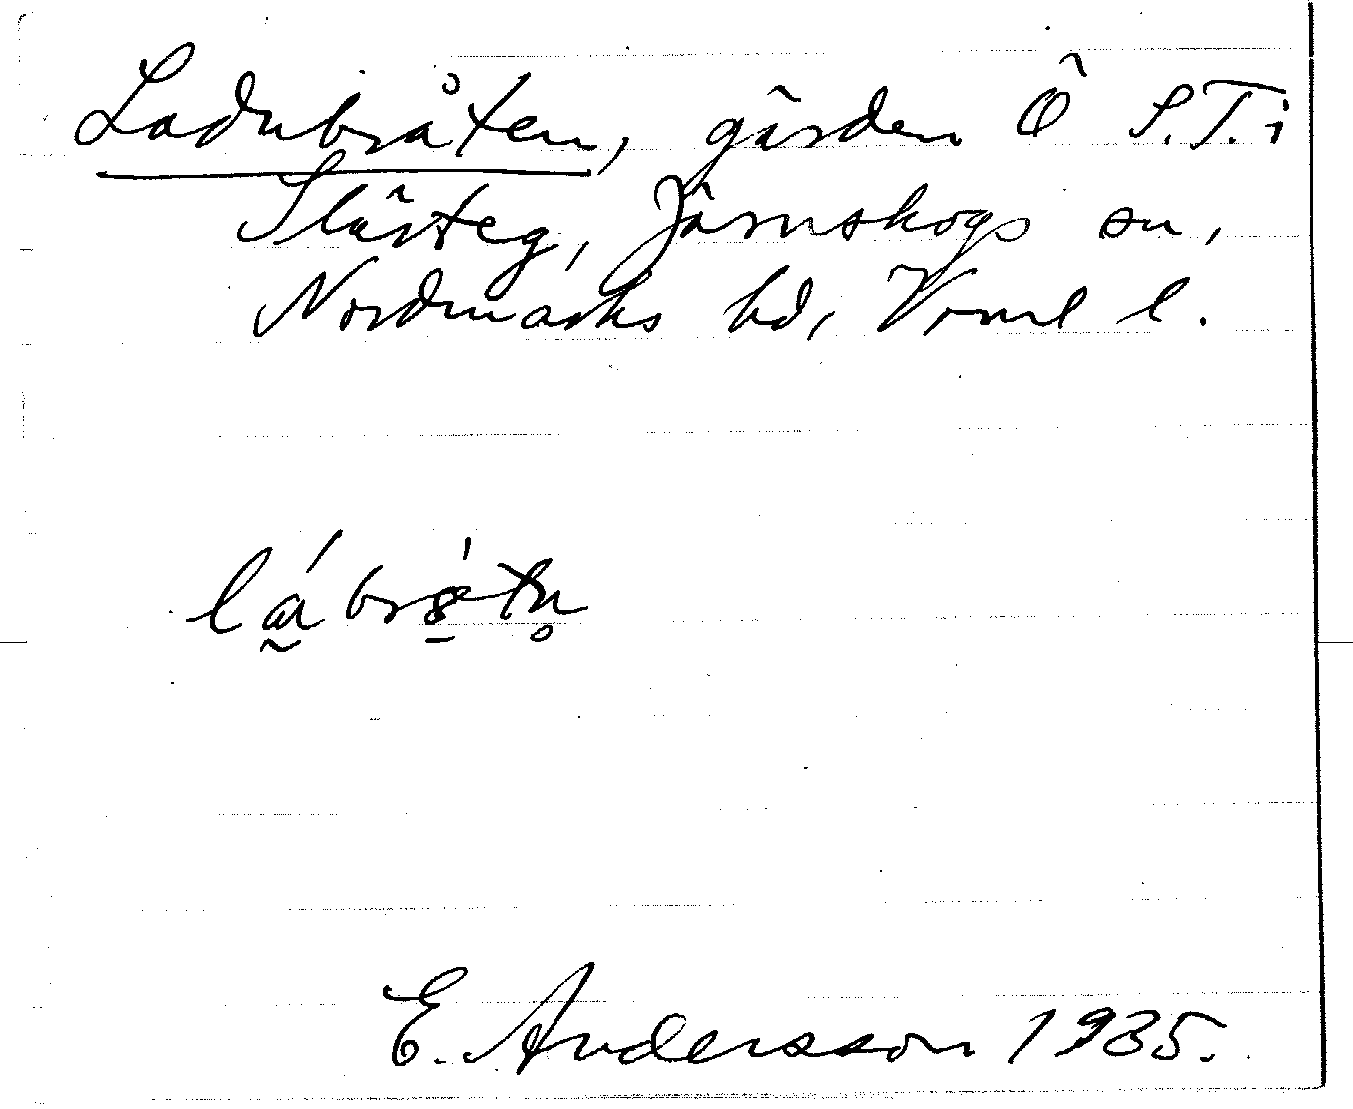 Ladubråten, gården Ö S.T. i
Slärteg, Järnskogs sn,
Nordmarks hd, Vrml l.
E. Andersson 1935.